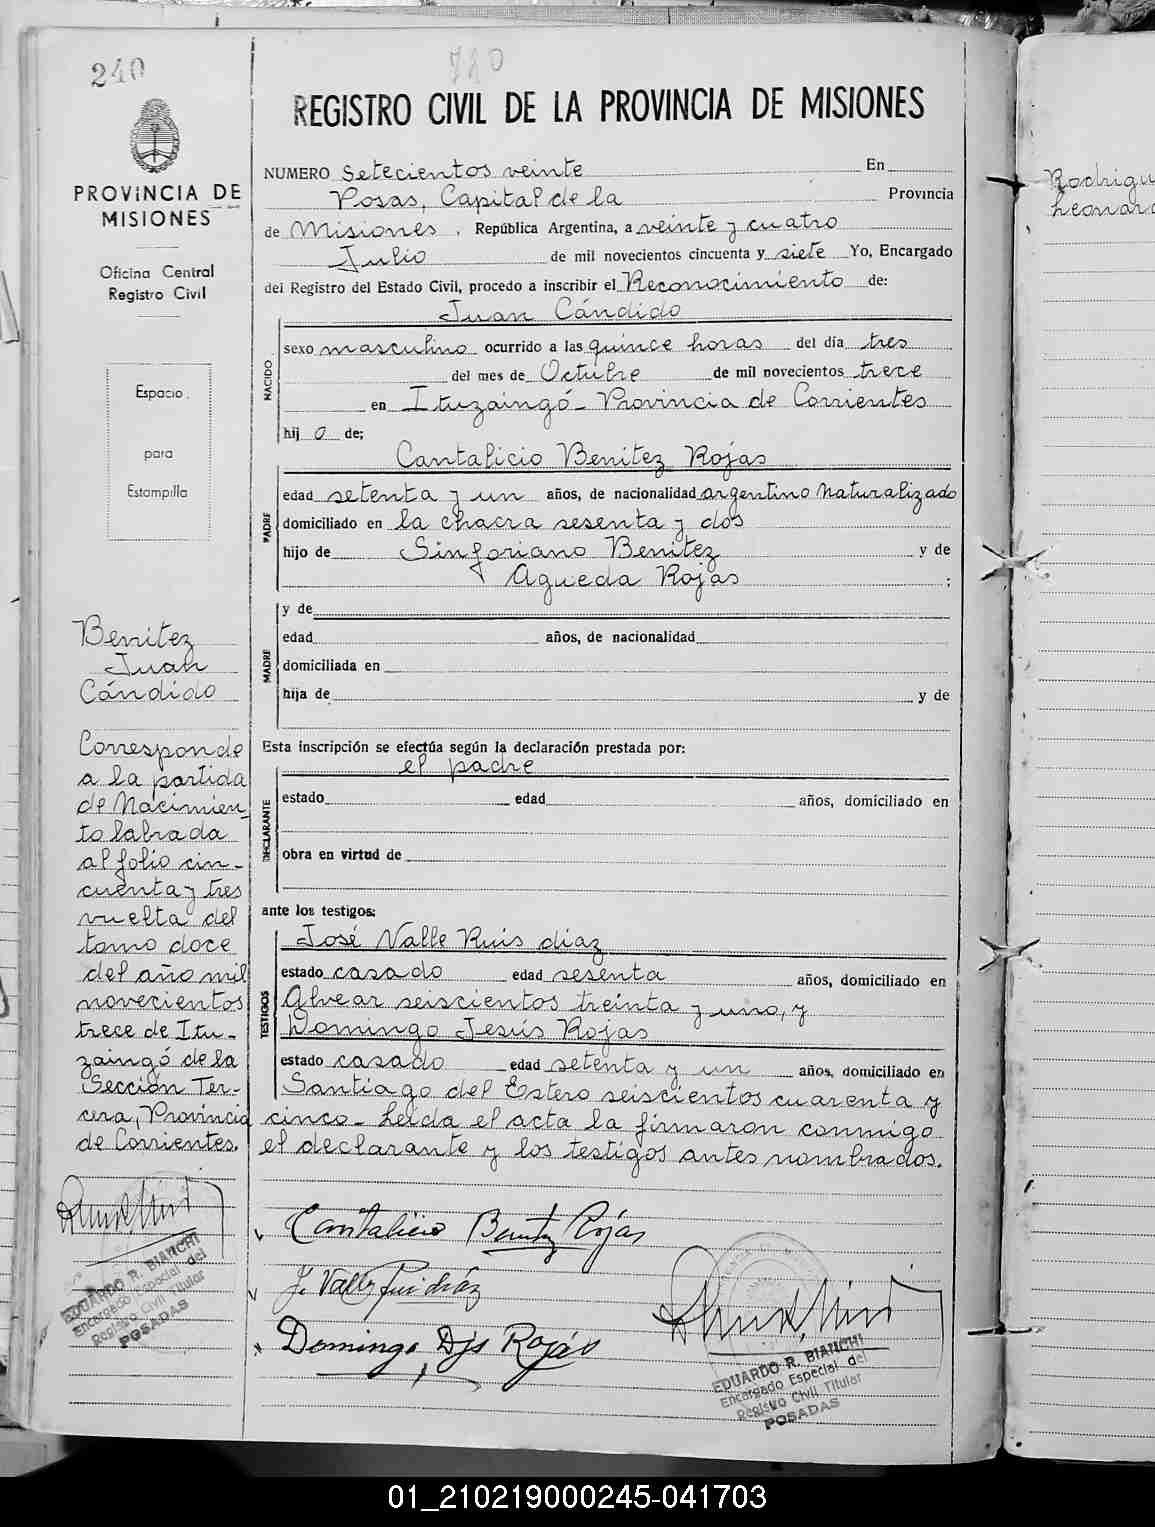 240
720
PROVINCIA DE
MISIONES
Oficina Central
Registro Civil
Espacio
para
Estampilla
Benitez
Juan
Cándido
Corresponde
a la partida
de Nacimien-
to labrada
al folio cin-
cuenta y tres
vuelta del
tomo doce
del año mil
novecientos
trece de Itu-
zaingó de la
Sección Ter-
cera, Provincia
de Corrientes.
EDUARDO R. BIANCHI
Encargado Especial del
Registro Civil Titular
POSADAS
REGISTRO CIVIL DE LA PROVINCIA DE MISIONES
NUMERO Setecientos veinte En
Posas, Capital de la Provincia
de Misiones, República Argentina, a veinte y cuatro
Julio de mil novecientos cincuenta y siete Yo, Encargado
del Registro del Estado Civil, procedo a inscribir el Reconocimiento de:
Juan Cándido
NACIDO
sexo masculino ocurrido a las quince horas del día tres
del mes de Octubre de mil novecientos trece
en Ituzaingó - Provincia de Corrientes
hij o de;
Cantalicio Benitez Rojas
PADRE
edad setenta y un años, de nacionalidad argentino Naturalizado
domiciliado en la chacra sesenta y dos
hijo de Sinforiano Benitez y de
Agueda Rojas ;
MADRE
y de
edad años, de nacionalidad
domiciliada en
hija de y de
Esta inscripción se efectúa según la declaración prestada por:
el padre
DECLARANTE
estado edad años, domiciliado en
obra en virtud de
ante los testigos:
TESTIGOS
José Valle Ruis diaz
estado casado edad sesenta años, domiciliado en
Alvear seiscientos treinta y uno, y
Domingo Jesús Rojas
estado casado edad setenta y un años, domiciliado en
Santiago del Estero seiscientos cuarenta y
cinco - Leida el acta la firmaron conmigo
el declarante y los testigos antes nombrados.
Cantalicio Benitez Rojas
J. Valle Rui diáz
Domingo Djs Rojas
EDUARDO R. BIANCHI
Encargado Especial del
Registro Civil Titular
POSADAS
Rodrigu
Leonard
01_210219000245-041703